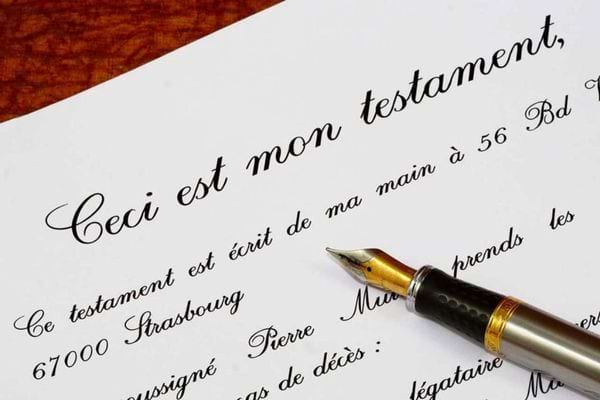 Ceci est mon testament,
Ce testament est écrit de ma main à 56 Bd
67000 Strasbourg
Pierre prends les
de décès :
légataire